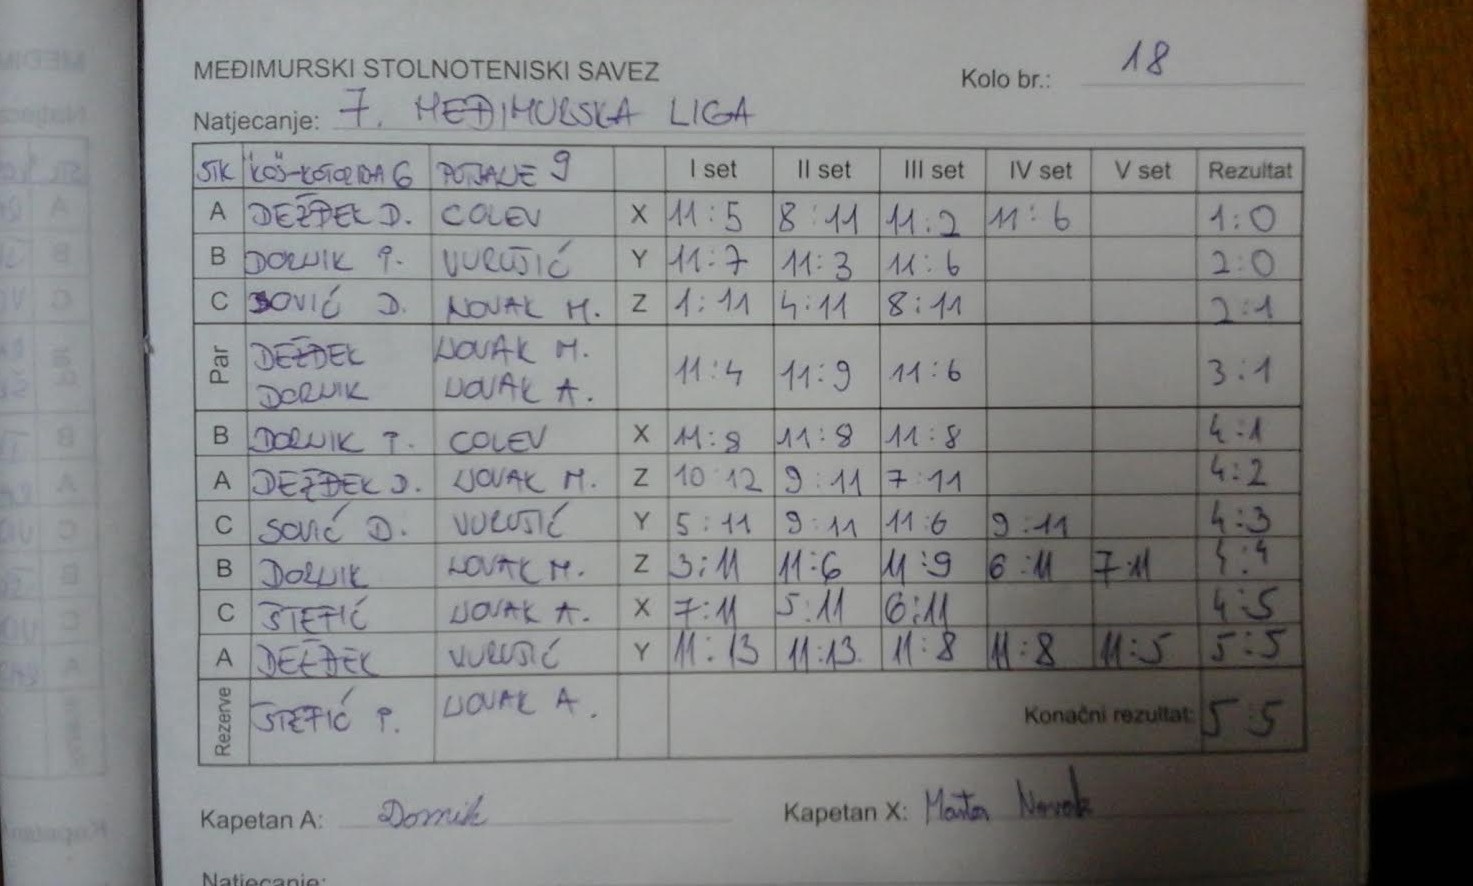 MEĐIMURSKI STOLNOTENISKI SAVEZ
Kolo br.: 18
Natjecanje: 7. MEĐIMURSKA LIGA
STK KOŠ-KOTORIBA 6 PUŠĆINE 9 I set II set III set IV set V set Rezultat
A DEŽĐEK D. COLEV X 11:5 8:11 11:2 11:6 1:0
B DORNIK P. VURUŠIĆ Y 11:7 11:3 11:6 2:0
C SOVIĆ D. NOVAK M. Z 1:11 4:11 8:11 2:1
Par DEŽĐEK NOVAK M.
DORNIK NOVAK A. 11:4 11:9 11:6 3:1
B DORNIK P. COLEV X 11:8 11:8 11:8 4:1
A DEŽĐEK D. NOVAK M. Z 10:12 9:11 7:11 4:2
C SOVIĆ D. VURUŠIĆ Y 5:11 9:11 11:6 9:11 4:3
B DORNIK NOVAK M. Z 3:11 11:6 11:9 6:11 7:11 4:4
C ŠTEFIĆ NOVAK A. X 7:11 5:11 6:11 4:5
A DEŽĐEK VURUŠIĆ Y 11:13 11:13 11:8 11:8 11:5 5:5
Rezerve ŠTEFIĆ P. NOVAK A. Konačni rezultat: 5:5
Kapetan A: Dornik
Kapetan X: Martin Novak
Natjecanje: